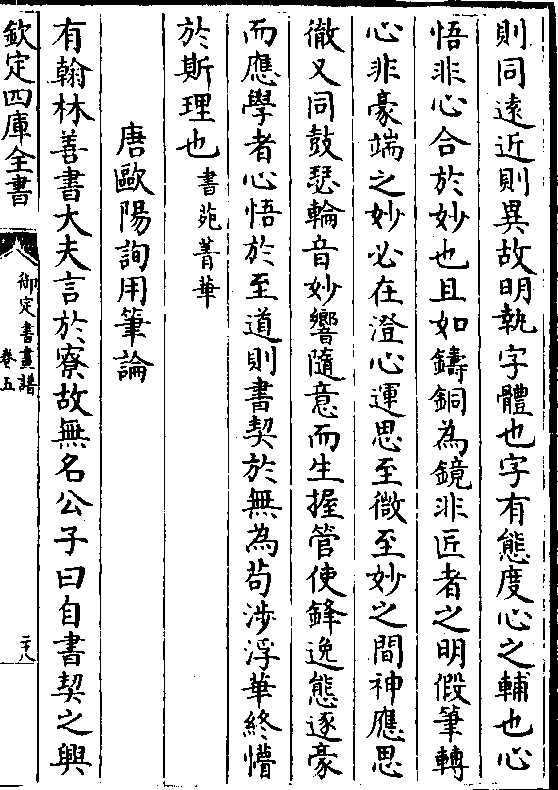 則同遠近則異故明執字體也字有態度心之輔也心
悟非心合於妙也且如鑄銅為鏡非匠者之明假筆轉
心非豪端之妙必在澄心運思至微至妙之間神應思
徹又同鼓瑟輪音妙響隨意而生握管使鋒逸態逐豪
而應學者心悟於至道則書契於無為苟涉浮華終懵
於斯理也書苑菁華
唐歐陽詢用筆論
有翰林善書大夫言於寮故無名公子曰自書契之興
欽定四庫全書
御定書畫譜
卷五
二十八